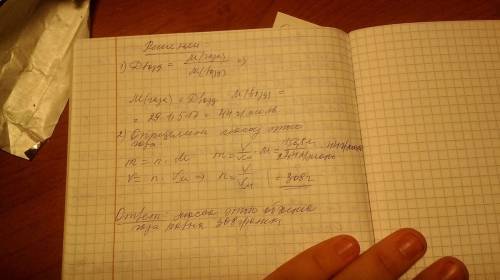 Решение
1) Dвозд = M(газа) / M(возд) ⇒
M(газа) = Dвозд · M(возд) =
= 29 · 1,517 = 44 г/моль
2) Определим массу этого
газа:
m = n · M m = V/Vm · M = 156,8л / 22,4 л/моль · 44 г/моль
V = n · Vm ⇒ n = V/Vm = 308г
Ответ: масса этого объема
газа равна 308 грамм